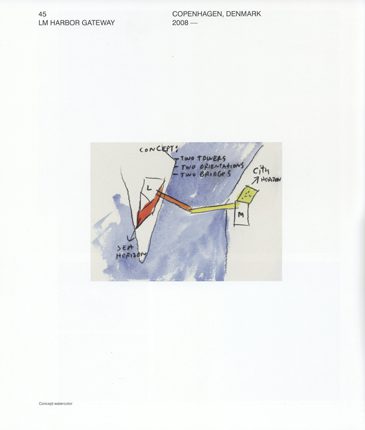 45
LM HARBOR GATEWAY
COPENHAGEN, DENMARK
2008 —
CONCEPT:
– TWO TOWERS
– TWO ORIENTATIONS
– TWO BRIDGES
City
HORIZON
L
M
SEA
HORIZON
Concept watercolor